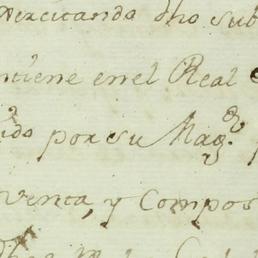 exercitando dho sub
ntiene en el Real
ido por su Mag.d
venta, y Compos